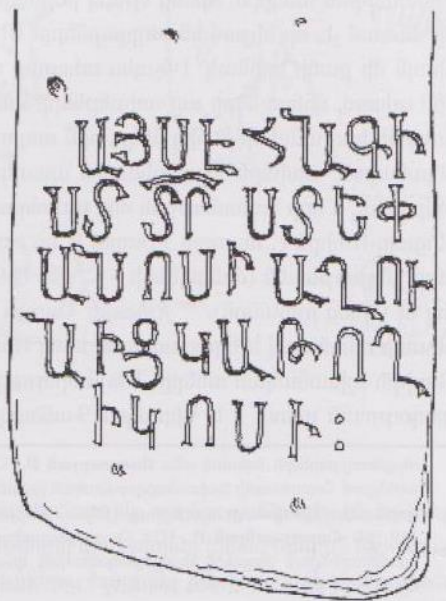 ԱՅՍ Է ՀԱՆԳԻ
ՍՏ ՏՐ ՍՏԵՓ
ԱՆՈՍԻ ԱՂՈՒ
ԱՆԻՑ ԿԱԹՈՂ
ԻԿՈՍԻ: